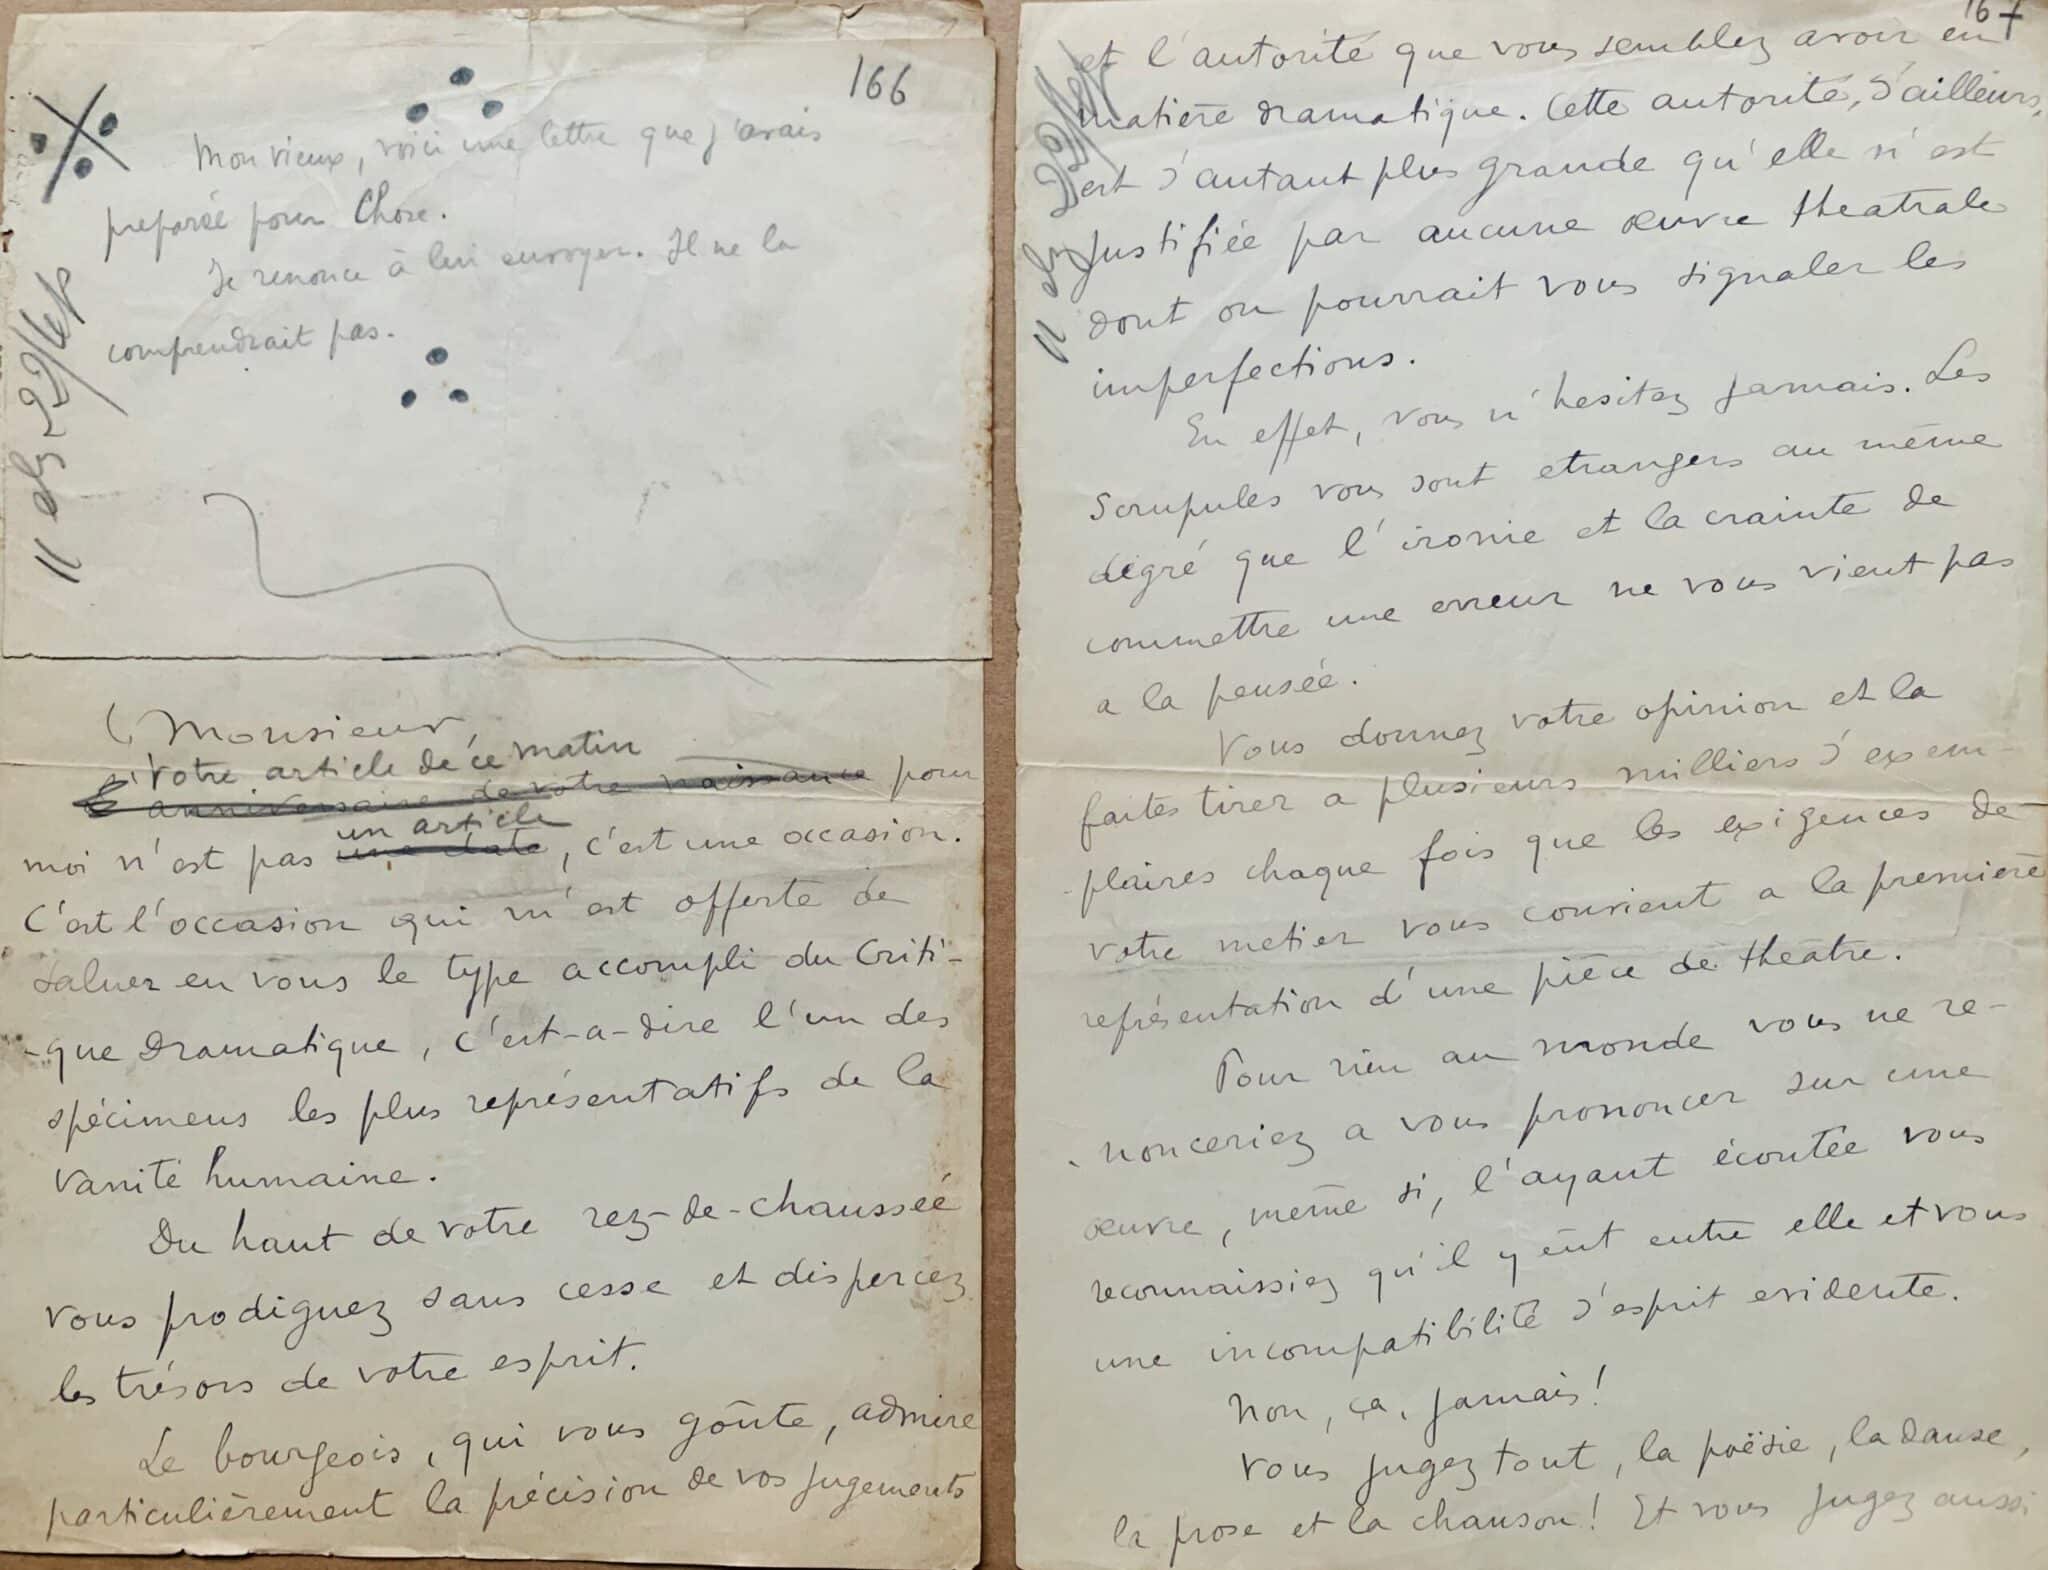 166
Mon vieux, voici une lettre que j'avais
preparée pour Chose.
Je renonce à lui envoyer. Il ne la
comprendrait pas.
Monsieur,
Votre article de ce matin
L'anniversaire de votre naissance pour
un article
moi n'est pas une date, c'est une occasion.
C'est l'occasion qui m'est offerte de
saluer en vous le type accompli du Criti-
-que Dramatique, c'est-a-dire l'un des
spécimens les plus représentatifs de la
vanité humaine.
Du haut de votre rez-de-chaussée
vous prodiguez sans cesse et dispercez
les trésors de votre esprit.
Le bourgeois, qui vous goûte, admire
particulièrement la précision de vos jugements
167
et l'autorité que vous semblez avoir en
matière dramatique. Cette autorité, d'ailleurs,
est d'autant plus grande qu'elle n'est
justifiée par aucune œuvre theatrale
dont on pourrait vous signaler les
imperfections.
En effet, vous n'hesitez jamais. Les
scrupules vous sont etrangers au même
degré que l'ironie et la crainte de
commettre une erreur ne vous vient pas
a la pensée.
Vous donnez votre opinion et la
faites tirer a plusieurs milliers d'exem-
-plaires chaque fois que les exigences de
votre metier vous convient a la première
représentation d'une pièce de theatre.
Pour rien au monde vous ne re-
-nonceriez a vous prononcer sur une
œuvre, même si, l'ayant écoutée vous
reconnaissiez qu'il y eût entre elle et vous
une incompatibilité d'esprit evidente.
Non, ça, jamais!
Vous jugez tout, la poësie, la danse,
la prose et la chanson! Et vous jugez aussi